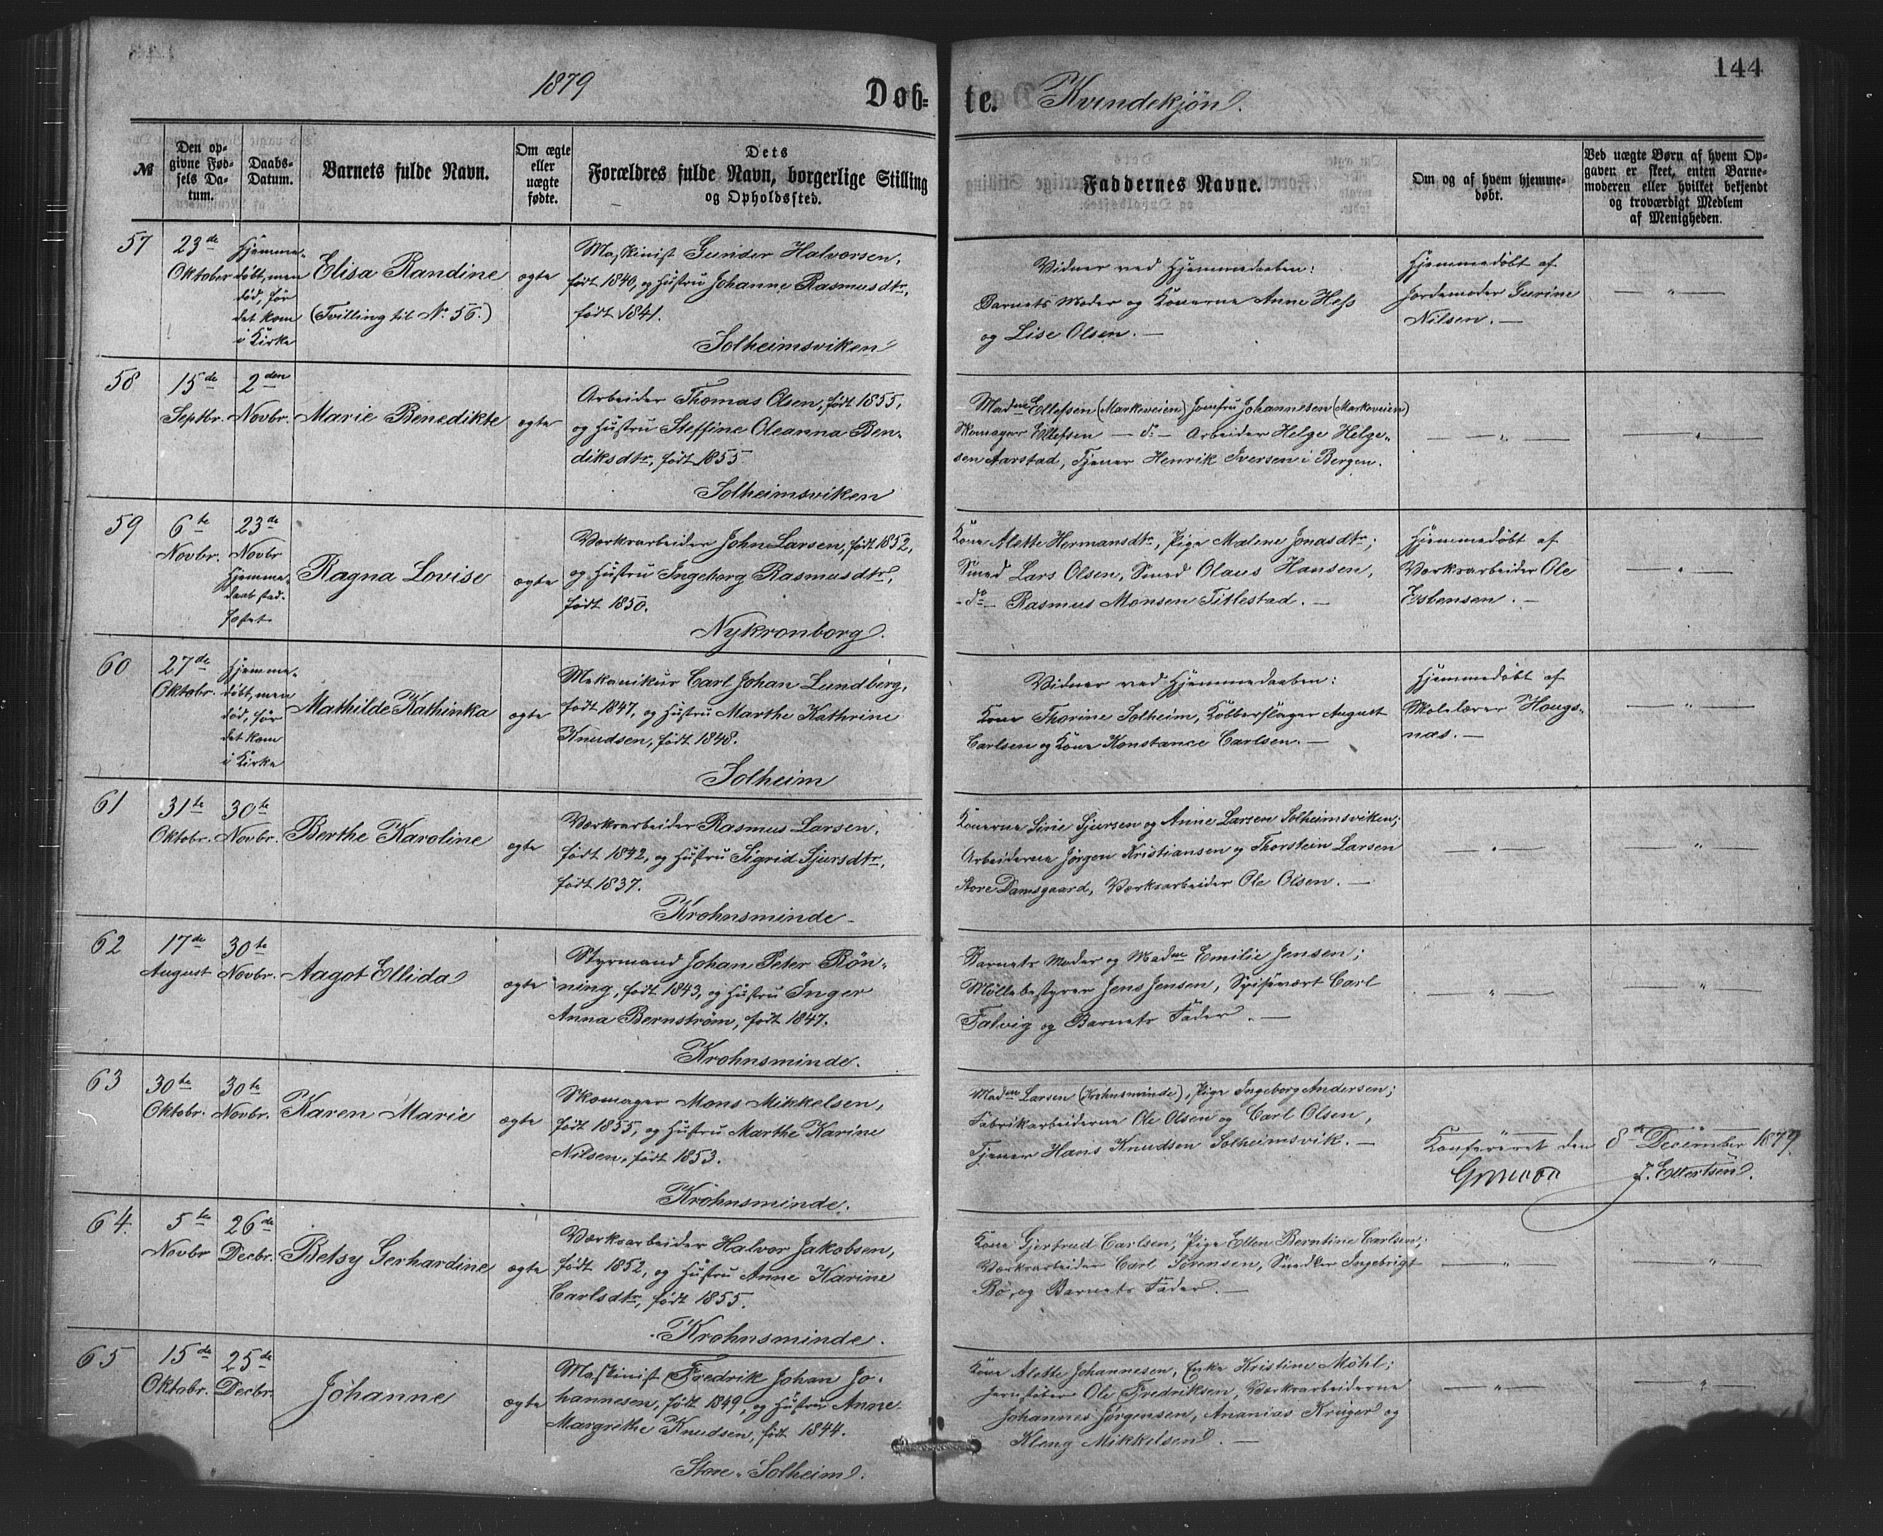 1879
Døb-
te. Kvindekjön.
144
№
Den op-
givne Fød-
sels Da-
tum.
Daabs-
Datum.
Barnets fulde Navn.
Om ægte
eller
uægte
fødte.
Dets
Forældres fulde Navn, borgerlige Stilling
og Opholdssted.
Faddernes Navne.
Om og af hvem hjemme-
døbt.
Ved uægte Børn af hvem Op-
gaven er skeet, enten Barne-
moderen eller hvilket bekjendt
og troværdigt Medlem
af Menigheden.
57
23de
Oktober
Hjemme-
döbt, men
död, för
det kom
i Kirke
Elisa Randine
(Tvilling til No. 56.)
ægte
Maskinist Gunder Halvorsen,
født 1840, og Hustru Johanne Rasmusdtr,
født 1841.
Solheimsviken
Vidner ved Hjemmedaaben:
Barnets Moder og Konerne Anne Hess
og Lise Olsen. —
Hjemmedöbt af
Jordemoder Gurine
Nilsen. —
— " —
58
15de
Septbr.
2den
Novbr.
Marie Benedikte
ægte
Arbeider Thomas Olsen, født 1855,
og Hustru Steffine Oleanna Ben-
diksdtr, født 1855
Solheimsviken
Madme Ellefsen (Markeveien) Jomfru Johannesen (Markeveien)
Skomager Ellefsen — do — Arbeider Helge Helge-
sen Aarstad, Tjener Henrik Iversen i Bergen.
— " —
— " —
59
6te
Novbr.
23de
Novbr
Hjemme-
daab stad-
fæstet
Ragna Lovise
ægte
Værksarbeider John Larsen, født 1852,
og Hustru Ingeborg Rasmusdtr,
født 1850.
Nykronborg.
Kone Alette Hermansdtr, Pige Malene Jonasdtr;
Smed Lars Olsen, Smed Olaus Hansen,
- do - Rasmus Monsen Titlestad. —
Hjemmedöbt af
Værksarbeider Ole
Esbensen. —
— " —
60
27de
Oktobr.
Hjemme-
döbt, men
död, för
det kom
i Kirke
Mathilde Kathinka
ægte
Mekanikus Carl Johan Lundberg,
født 1847, og Hustru Marthe Kathrine
Knudsen, født 1848.
Solheim
Vidner ved Hjemmedaaben:
Kone Thorine Solheim, Kobberslager August
Carlsen og Kone Konstance Carlsen. —
Hjemmedöbt af
Skolelærer Hougs-
næs. —
— " —
61
31te
Oktobr.
30te
Novbr.
Berthe Karoline
ægte
Værksarbeider Rasmus Larsen,
født 1842, og Hustru Sigrid Sjursdtr,
født 1837.
Krohnsminde
Konerne Sirie Sjursen og Anne Larsen Solheimsviken;
Arbeiderne Jörgen Kristiansen og Thorstein Larsen
Store Damsgaard, Værksarbeider Ole Olsen. —
— " —
— " —
62
17de
August
30te
Novbr.
Aagot Ellida
ægte
Styrmand Johan Peter Rön-
ning, født 1843, og Hustru Inger
Anna Bernström, født 1847.
Krohnsminde.
Barnets Moder og Madme Emilie Jensen;
Möllebestyrer Jens Jensen, Spisevært Carl
Talvig og Barnets Fader. —
— " —
— " —
63
30te
Oktobr.
30te
Novbr.
Karen Marie
ægte
Skomager Mons Mikkelsen,
født 1855, og Hustru Marthe Karine
Nilsen, født 1853.
Krohnsminde.
Madme Larsen (Krohnsminde), Pige Ingeborg Andersen;
Fabrikarbeiderne Ole Olsen og Carl Olsen,
Tjener Hans Knudsen Solheimsvik. —
Konfereret den 8de December 1879.
J. Ellertsen.
64
5te
Novbr
26de
Decbr.
Betsy Gerhardine
ægte
Værksarbeider Halvor Jakobsen,
født 1852, og Hustru Anne Karine
Carlsdtr, født 1855.
Krohnsminde.
Kone Gjertrud Carlsen, Pige Ellen Berntine Carlsen;
Værksarbeider Carl Sörensen, Snedker Ingebrigt
Bö, og Barnets Fader. —
— " —
— " —
65
15de
Oktobr.
25de
Decbr.
Johanne
ægte
Maskinist Fredrik Johan Jo-
hannesen, født 1849, og Hustru Anne
Margrethe Knudsen, født 1844.
Store-Solheim.
Kone Alette Johannesen, Enke Kristine Möhl;
Jernstöber Ole Fredriksen, Værksarbeiderne
Johannes Jörgensen, Ananias Kruger og
Kleng Mikkelsen. —
— " —
— " —